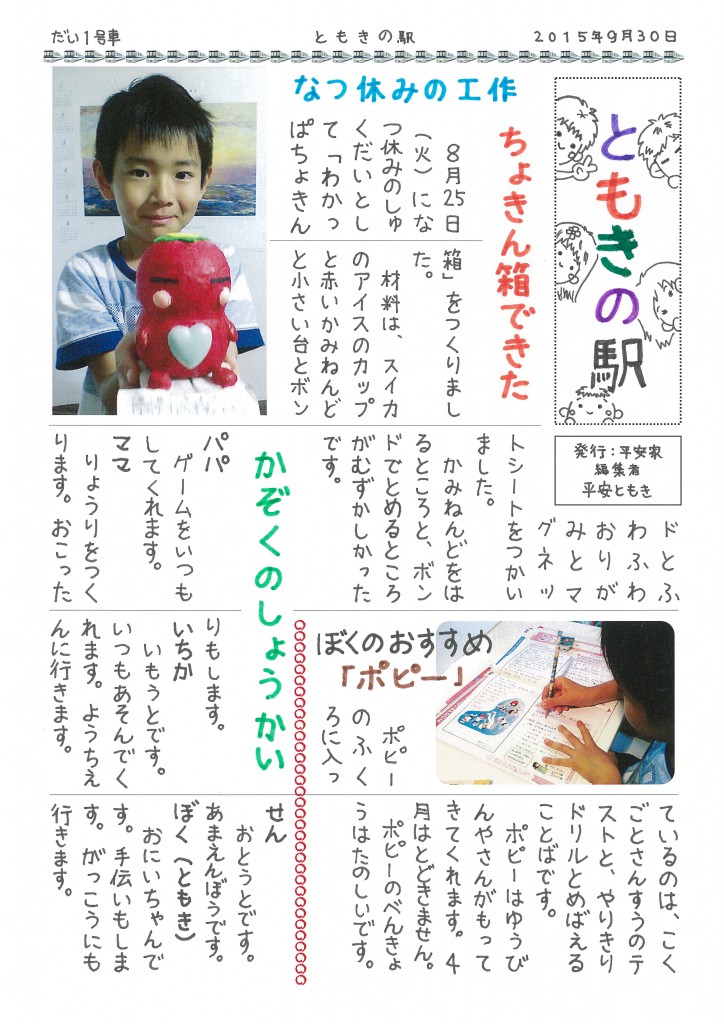 だい1号車
ともきの駅
2015年9月30日
ともきの駅
発行:平安家
編集者
平安ともき
なつ休みの工作
ちょきん箱できた
8月25日
(火)にな
つ休みのしゅ
くだいとし
て「わかっ
ぱちょきん
箱」をつくりまし
た。
材料は、スイカ
のアイスのカップ
と赤いかみねんど
と小さい台とボン
ドとふ
わふわ
おりが
みとマ
グネッ
トシートをつかい
ました。
かみねんどをは
るところと、ボン
ドでとめるところ
がむずかしかった
です。
ぼくのおすすめ
「ポピー」
ポピー
のふく
ろに入っ
ているのは、こく
ごとさんすうのテ
ストと、やりきり
ドリルとめばえる
ことばです。
ポピーはゆうび
んやさんがもって
きてくれます。4
月はとどきません。
ポピーのべんきょ
うはたのしいです。
かぞくのしょうかい
パパ
ゲームをいつも
してくれます。
ママ
りょうりをつく
ります。おこった
りもします。
いちか
いもうとです。
いつもあそんでく
れます。ようちえ
んに行きます。
せん
おとうとです。
あまえんぼうです。
ぼく(ともき)
おにいちゃんで
す。手伝いもしま
す。がっこうにも
行きます。